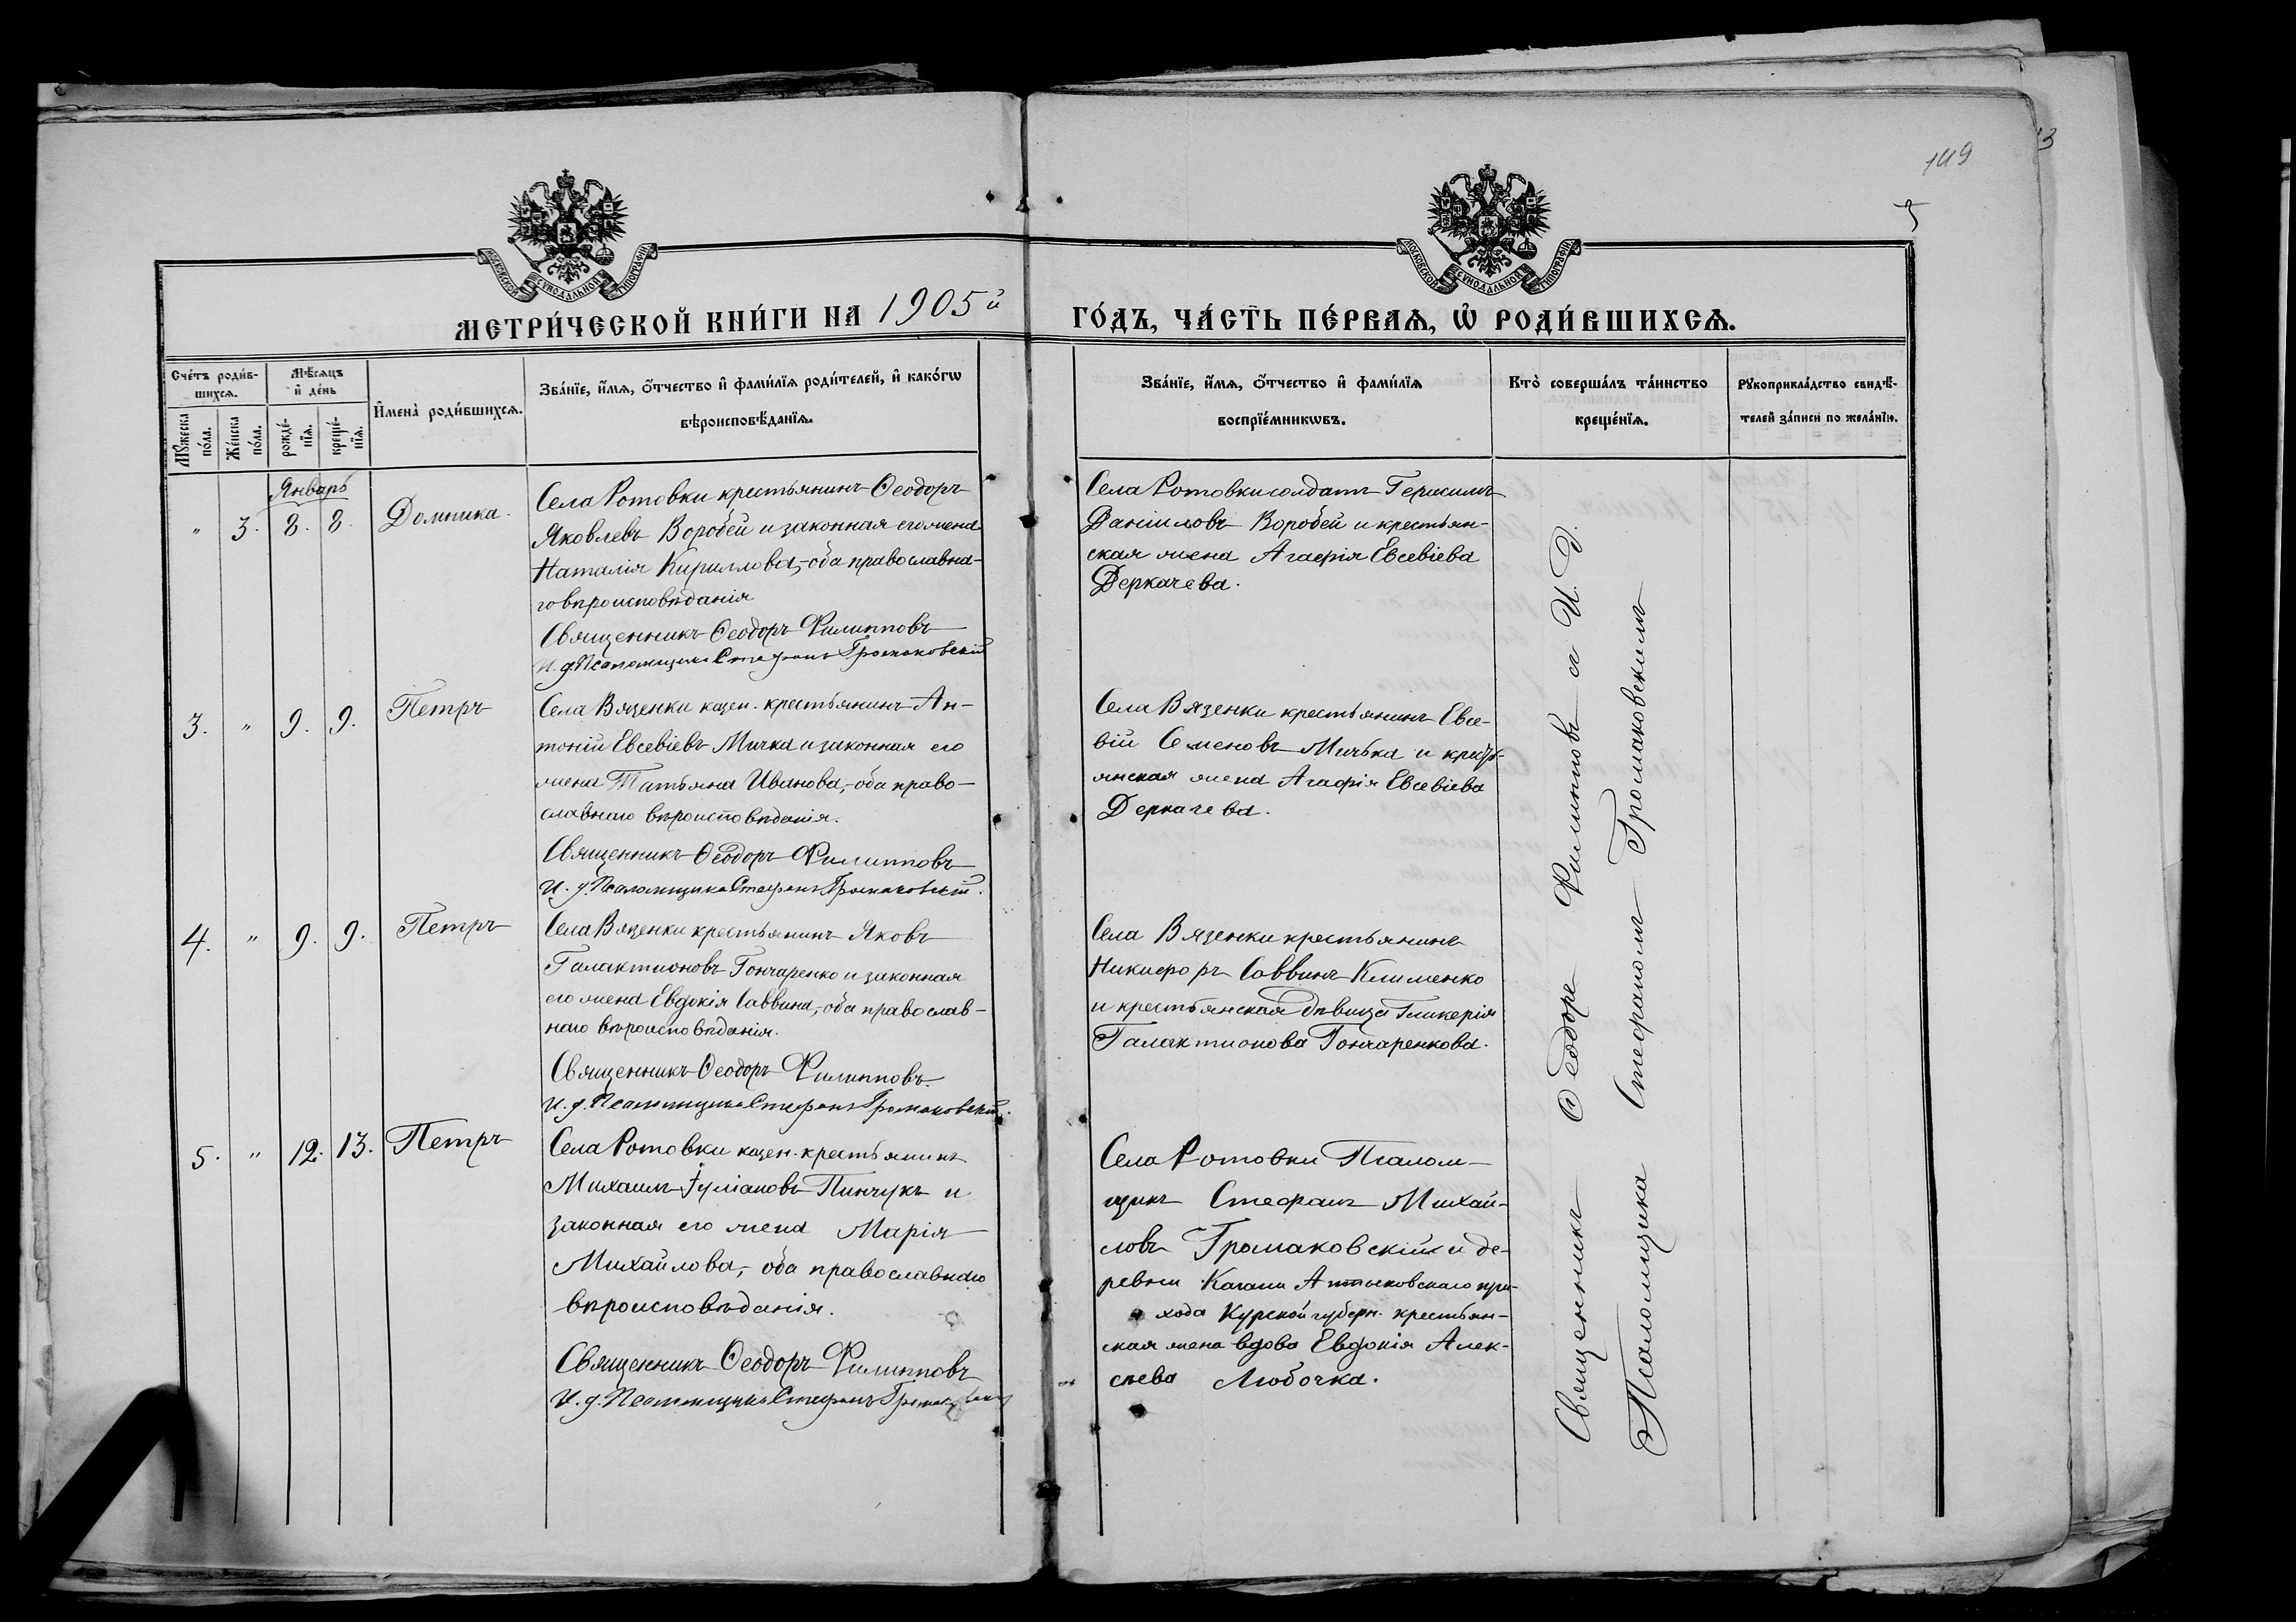 149
5
МОСКОВСКОЙ СѴНОДАЛЬНОЙ ТИПОГРАФІИ
МОСКОВСКОЙ СѴНОДАЛЬНОЙ ТИПОГРАФІИ
МЕТРИ́ЧЕСКОЙ КНИ́ГИ НА 1905й ГО́ДЪ, ЧА́СТЬ ПЕ́РВАѦ, Ѡ҆ РОДИ́ВШИХСѦ.
Сче́тъ роди́в-
шихсѧ.
Мꙋ́жеска
по́ла.
Же́нска
по́ла.
Мѣ́сѧцъ
и҆ де́нь
рожде́-
нїѧ.
креще́-
нїѧ.
И҆мена̀ роди́вшихсѧ.
Зва́нїе, и҆́мѧ, ѻ҆́тчество и҆ фами́лїѧ роди́телей, и҆ како́гѡ
вѣроисповѣ́данїѧ.
Зва́нїе, и҆́мѧ, ѻ҆́тчество и҆ фами́лїѧ
воспрїе́мникѡвъ.
Кто̀ соверша́лъ та́инство
креще́нїѧ.
Рꙋкоприкла́дство свидѣ́-
телей за́писи по жела́нїю.
Январь
" 3. 8. 8. Домника.
Села Ротовки крестьянинъ Ѳеодоръ
Яковлевъ Воробей и законная его жена
Наталія Кириллова,-оба православна-
го вѣроисповѣданія
Священникъ Ѳеодоръ Филипповъ
И. д. Псаломщика Стефанъ Громаковскій
Села Ротовки солдатъ Герасимъ
Даніиловъ Воробей и крестьян-
ская жена Агафія Евсевіева
Деркачева.
3. " 9. 9. Петръ
Села Вязенки казен. крестьянинъ Ан-
тоній Евсевіевъ Мичка и законная его
жена Татьяна Иванова,-оба право-
славнаго вѣроисповѣданія.
Священникъ Ѳеодоръ Филипповъ
И. д. Псаломщика Стефанъ Громаковскій.
Села Вязенки крестьянинъ Евсе-
вій Семеновъ Мичка и
янская жена Агафія Евсевіева
Деркачева.
4. " 9. 9. Петръ
Села Вязенки крестьянинъ Яковъ
Галактіоновъ Гончаренко и законная
его жена Евдокія Саввина,-оба православ-
наго вѣроисповѣданія.
Священникъ Ѳеодоръ Филипповъ.
И. д. Псаломщика Стефанъ Громаковскій.
Села Вязенки крестьянинъ
Никифоръ Саввинъ Клименко
и крестьянская дѣвица Гликерія
Галактионова Гончаренкова.
5. " 12. 13. Петръ
Села Ротовки казен. крестьянинъ
Михаилъ Іуліановъ Пинчукъ и
законная его жена Марія
Михайлова, оба православнаго
вѣроисповѣданія.
Священникъ Ѳеодоръ Филипповъ
И. д. Псаломщика Стефанъ Громаковскій
Села Ротовки Псалом-
щикъ Стефанъ Михай-
ловъ Громаковскій и де-
ревни при-
хода Курской губерн. крестьян-
ская жена вдова Евдокія Алек-
сѣева Любочка.
Священникъ Ѳеодоръ Филипповъ съ И. Д.
Псаломщика Стефаномъ Громаковскимъ